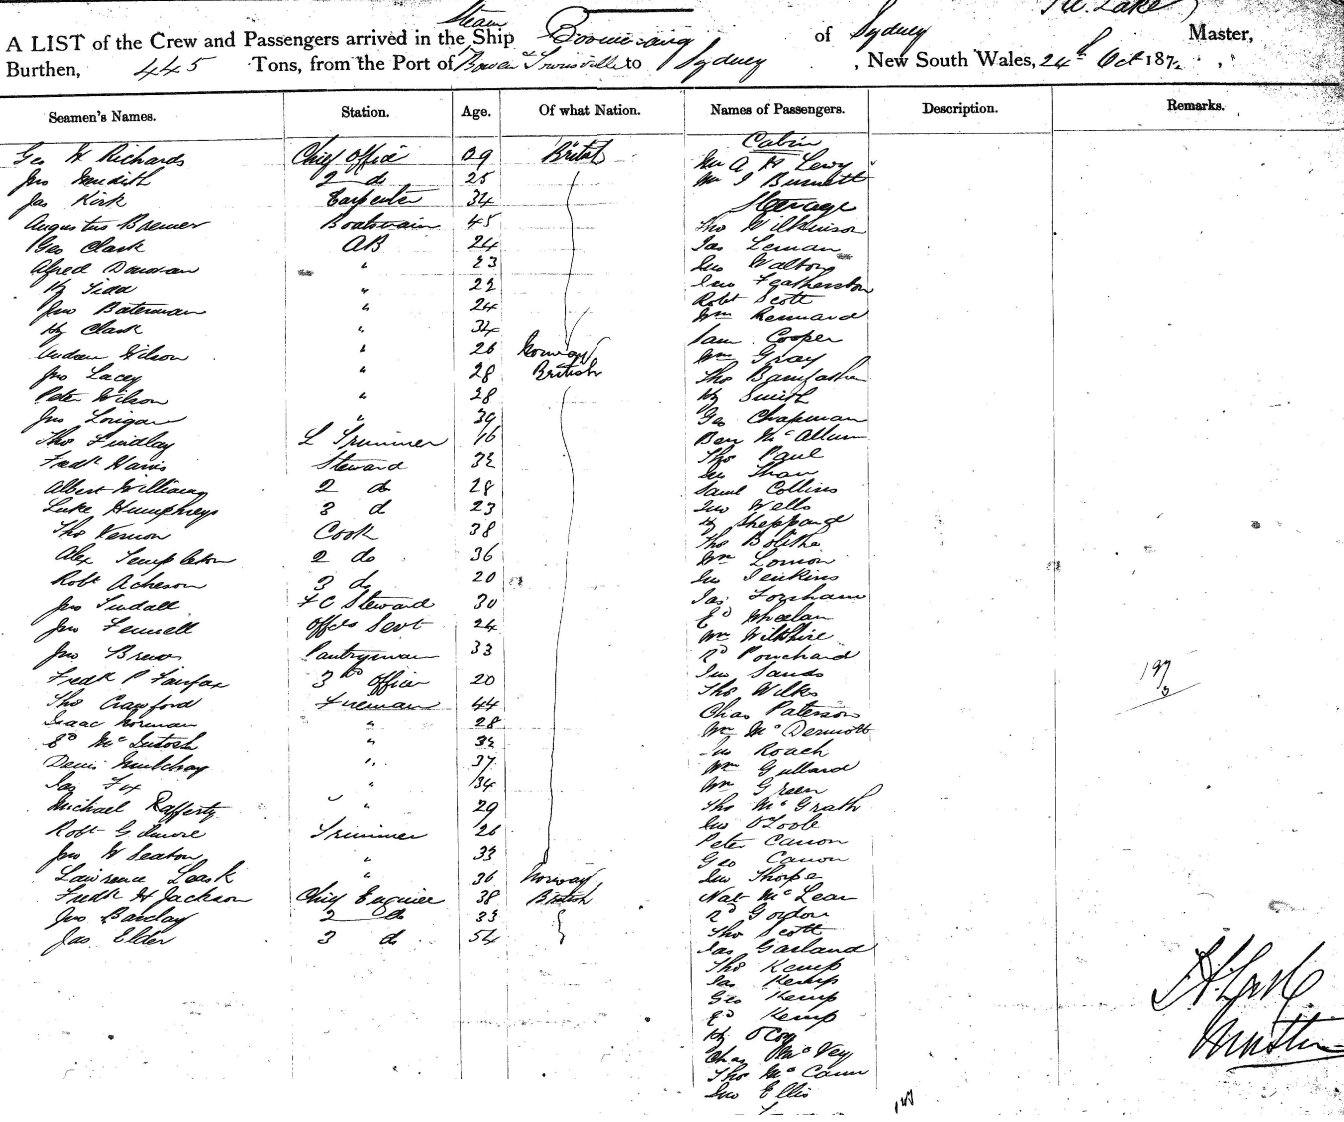 Steam
A LIST of the Crew and Passengers arrived in the Ship Boomerang of Sydney Master,
Burthen, 445 Tons, from the Port of Bowen & Townsville to Sydney, New South Wales, 24th Oct 187
Seamen's Names. Station. Age. Of what Nation. Names of Passengers. Description. Remarks.
Cabin
Geo H Richards Chief Office 29 British Mr A H Levy
Jno Meridith 2 d 25 Mr J Burnett
Jas Kirk Carpenter 34 Steerage
Augustus Boatswain 45 Tho Wilkinson
Geo Clark AB 24 Jas Leman
Alfred " 23 Jno Walton
Hy " 22 Jno Featherston
Jno Bateman " 24 Robt Scott
Hy Clark " 34 Wm Kennard
Wilson " 26 Norway Sam Cooper
Jno Lacey " 28 British Wm Gray
Peter Wilson " 28 Tho
Jno Lorigan " 39 Hy Smith
Tho Findlay L Trimmer 16 Geo Chapman
Fredk Harris Steward 32 Ben McAllum
Albert Williams 2 do 28 Tho Paul
Luke Humphreys 3 d 23 Jno Shaw
Tho Vernon Cook 38 Saml Collins
Alex Templeton 2 do 36 Jno Wells
Robt Acheson 3 d 20 Hy
Jno Tindall F C Steward 30 Tho Bolitho
Jno Fennell Offcs Servt 24 Wm
Jno Pantryman 33 Jno Jenkins
Fredk P Fairfax 3rd Officer 20 Jas Forsham
Tho Crawford Fireman 44 Ed Wheelan
Isaac Norman " 28 Wm Wiltshire
Ed McIntosh " 32 Rd Pouchard
Denis Mulchay " 37 Jno Sands
Jas Fox " 34 Tho Wilks
Michael Rafferty " 29 Chas Paterson
Robt Gilmore Trimmer 26 Wm McDermott
Jno W Seaton " 33 Jno Roach
Lawrence Leask " 36 Norway Wm Gullard
Fredk H Jackson Chief Engineer 38 British Wm Green
Jno Barclay 2 do 33 Tho McGrath
Jas Elder 3 do 54 Jno O'Toole
Peter Canon
Geo Canon
Jno Thorpe
Nat McLean
Rd Gordon
Tho Scott
Jas Garland
Tho Kemp
Jas Kemp
Geo Kemp
Ed Kemp
Hy
Chas McVey
Tho McCann
Jno Ellis